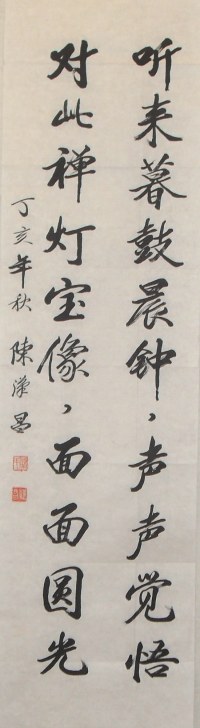 听来暮鼓晨钟，声声觉悟
对此禅灯宝像，面面圆光
丁亥年秋 陈汉昌